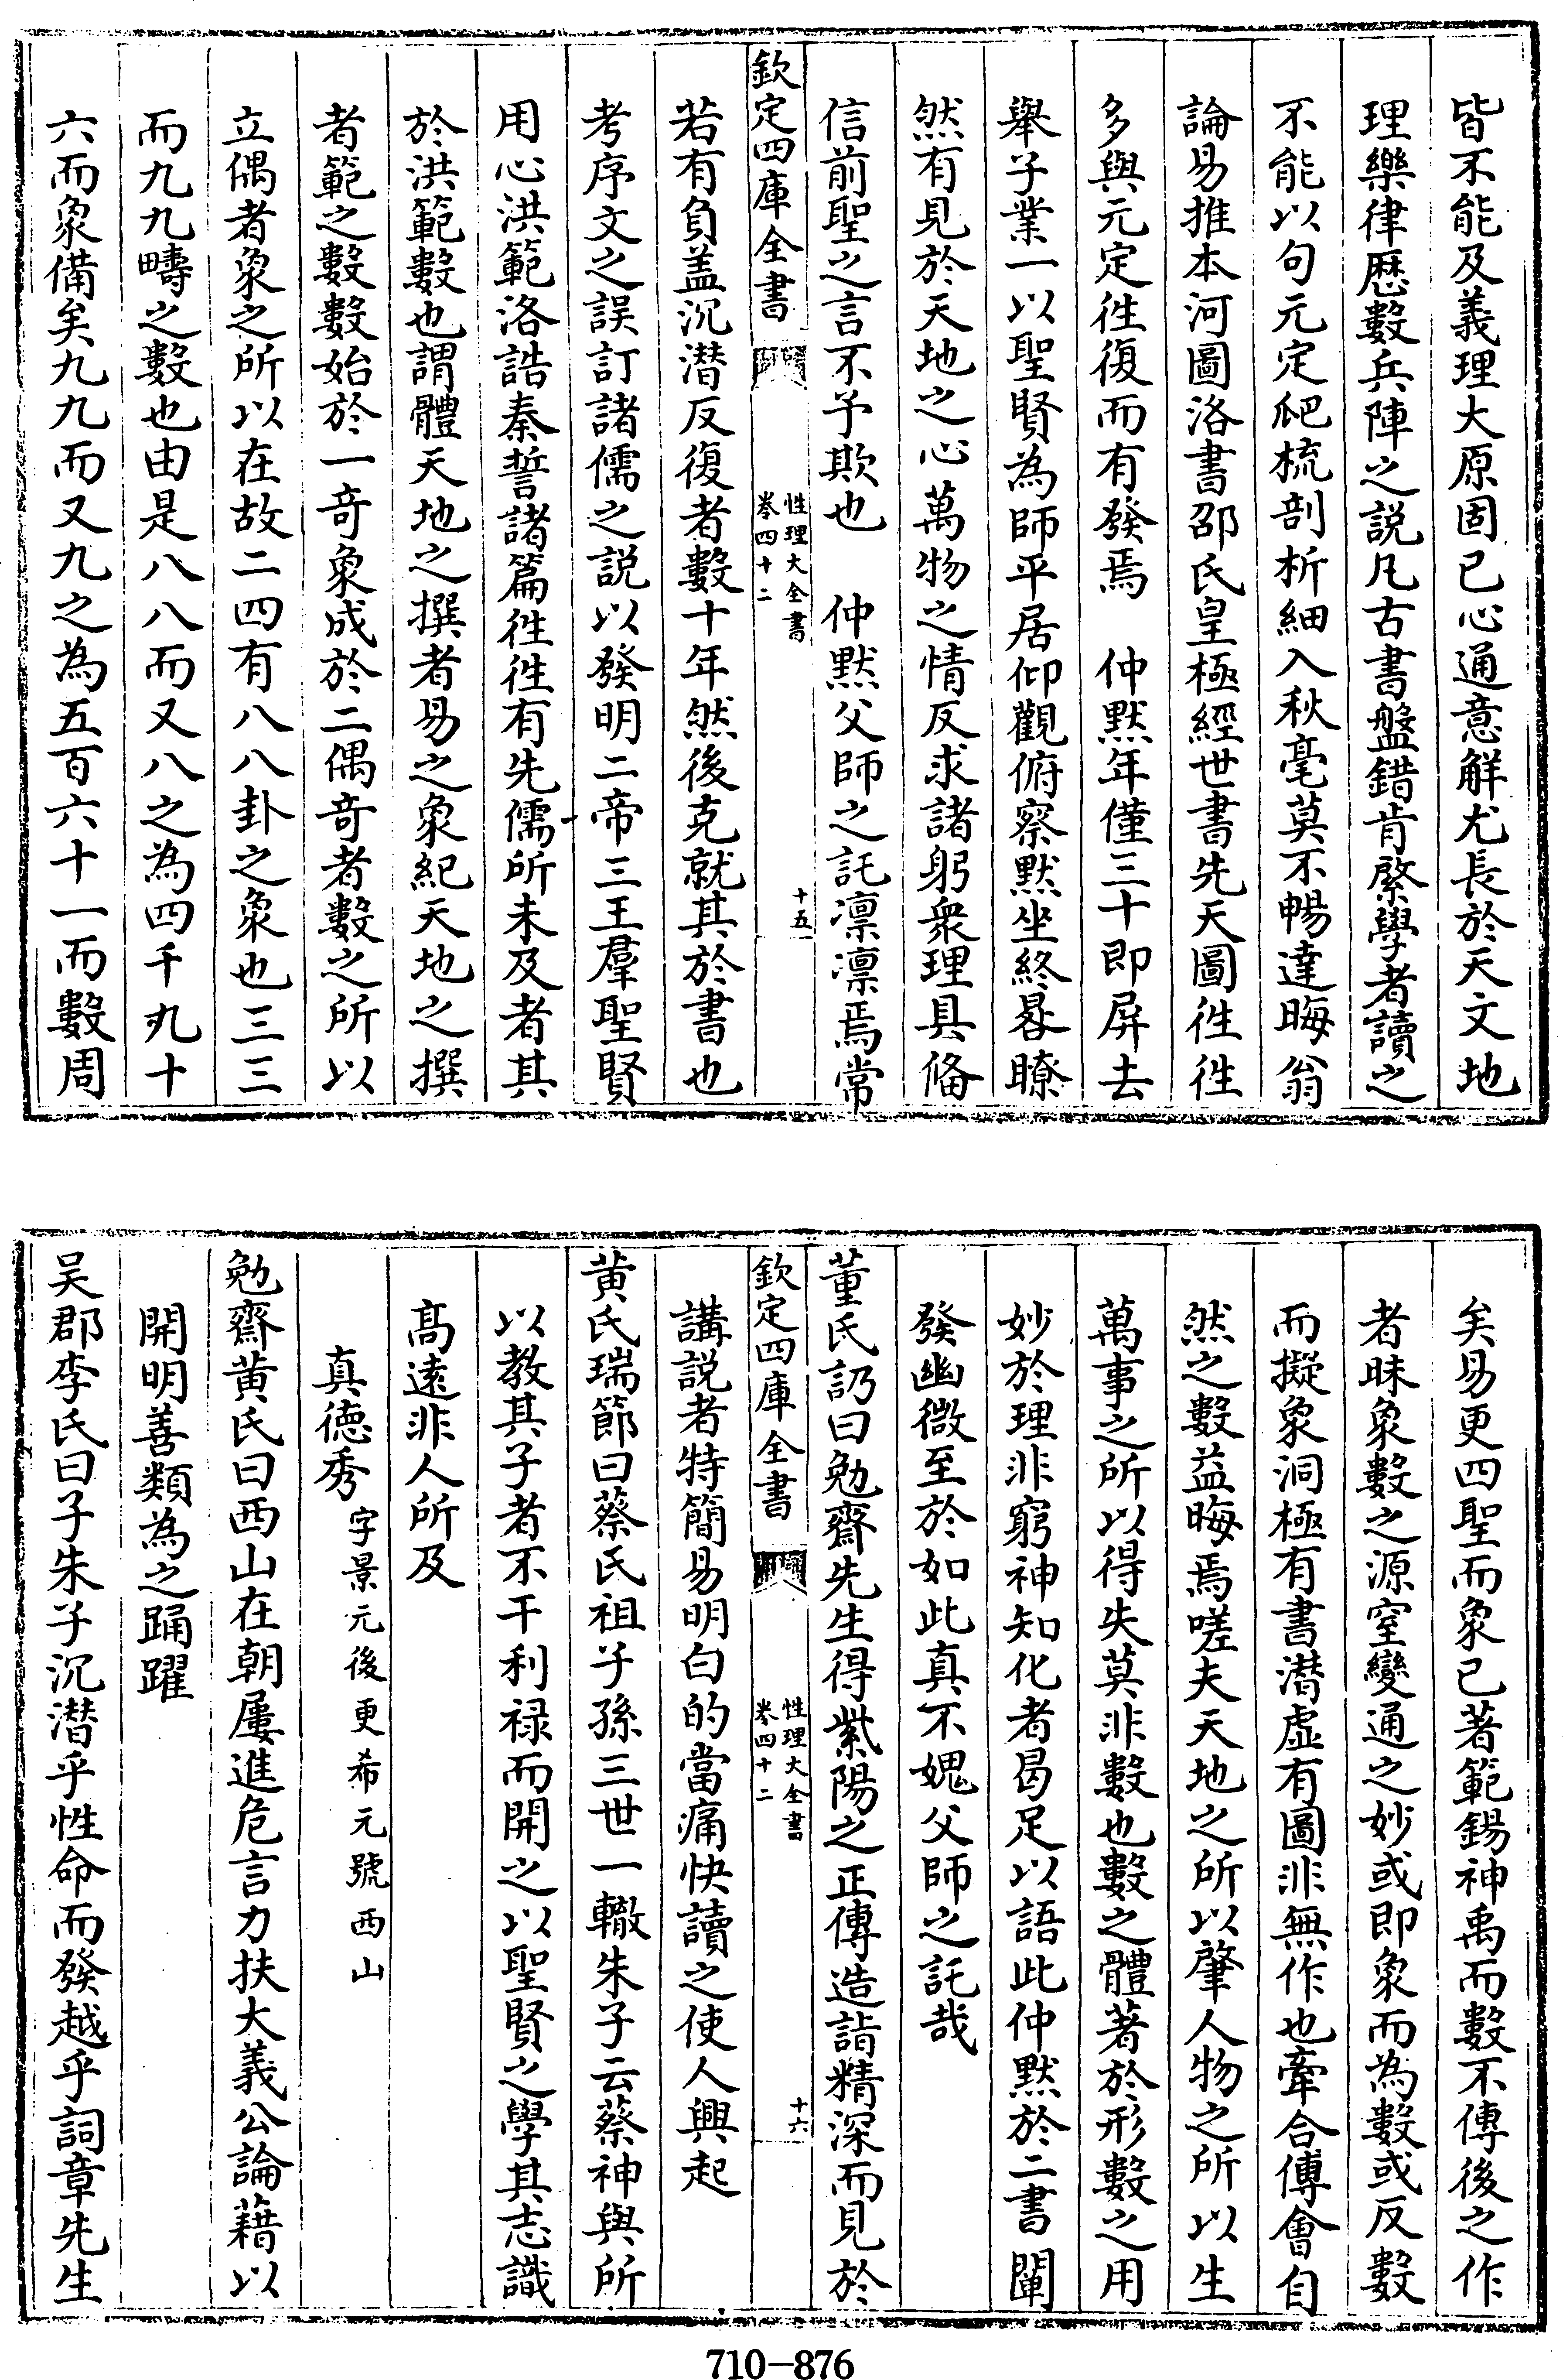 皆不能及義理大原固已心通意解尤長於天文地
理樂律厯數兵陣之説凡古書盤錯肯綮學者讀之
不能以句元定爬梳剖析細入秋毫莫不暢達晦翁
論易推本河圖洛書邵氏皇極經世書先天圖徃徃
多與元定徃復而有發焉　仲黙年僅三十即屏去
舉子業一以聖賢為師平居仰觀俯察黙坐終晷瞭
然有見於天地之心萬物之情反求諸躬衆理具備
信前聖之言不予欺也　仲黙父師之託凛凛焉常
欽定四庫全書
性理大全書
卷四十二
十五
若有負盖沉潜反復者數十年然後克就其於書也
考序文之誤訂諸儒之説以發明二帝三王羣聖賢
用心洪範洛誥秦誓諸篇徃徃有先儒所未及者其
於洪範數也謂體天地之撰者易之象紀天地之撰
者範之數數始於一竒象成於二偶竒者數之所以
立偶者象之所以在故二四有八八卦之象也三三
而九九疇之數也由是八八而又八之為四千九十
六而象備矣九九而又九之為五百六十一而數周
矣易更四聖而象已著範錫神禹而數不傳後之作
者昧象數之源窒變通之妙或即象而為數或反數
而擬象洞極有書潜虛有圖非無作也牽合傅會自
然之數益晦焉嗟夫天地之所以肇人物之所以生
萬事之所以得失莫非數也數之體著於形數之用
妙於理非窮神知化者曷足以語此仲黙於二書闡
發幽微至於如此真不媿父師之託哉
董氏訒曰勉齋先生得紫陽之正傳造詣精深而見於
欽定四庫全書
性理大全書
卷四十二
十六
講説者特簡易明白的當痛快讀之使人興起
黄氏瑞節曰蔡氏祖子孫三世一轍朱子云蔡神與所
以教其子者不干利禄而開之以聖賢之學其志識
高遠非人所及
真徳秀字景元後更希元號西山
勉齋黄氏曰西山在朝屢進危言力扶大義公論藉以
開明善類為之踊躍
吴郡李氏曰子朱子沉潜乎性命而發越乎詞章先生
710-876